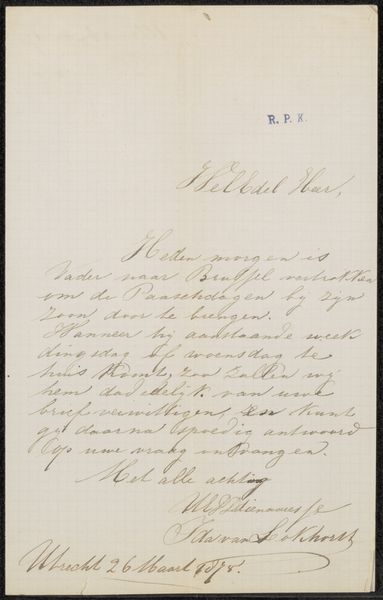 R. P. K.
WelEdel Heer,
Heden morgen is
Vader naar Brussel vertrokken
om de Paaschdagen by zyn
zoon door te brengen.
Wanneer hy aanstaande week
dingsdag of woensdag te
huis komt, zoo zullen wy
hem dadelyk van uwe
brief verwittigen, en kunt
gy daarna spoedig antwoord
op uwe vraag ontvangen.
Met alle achting
UEd Dienaresse
Ida van Lokhorst
Utrecht 26 Maart 1875.